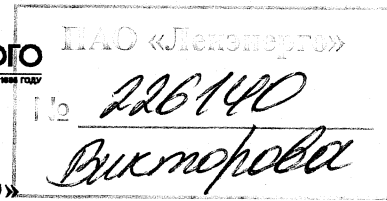 ПАО «Ленэнерго»
№ 226140
Викторова